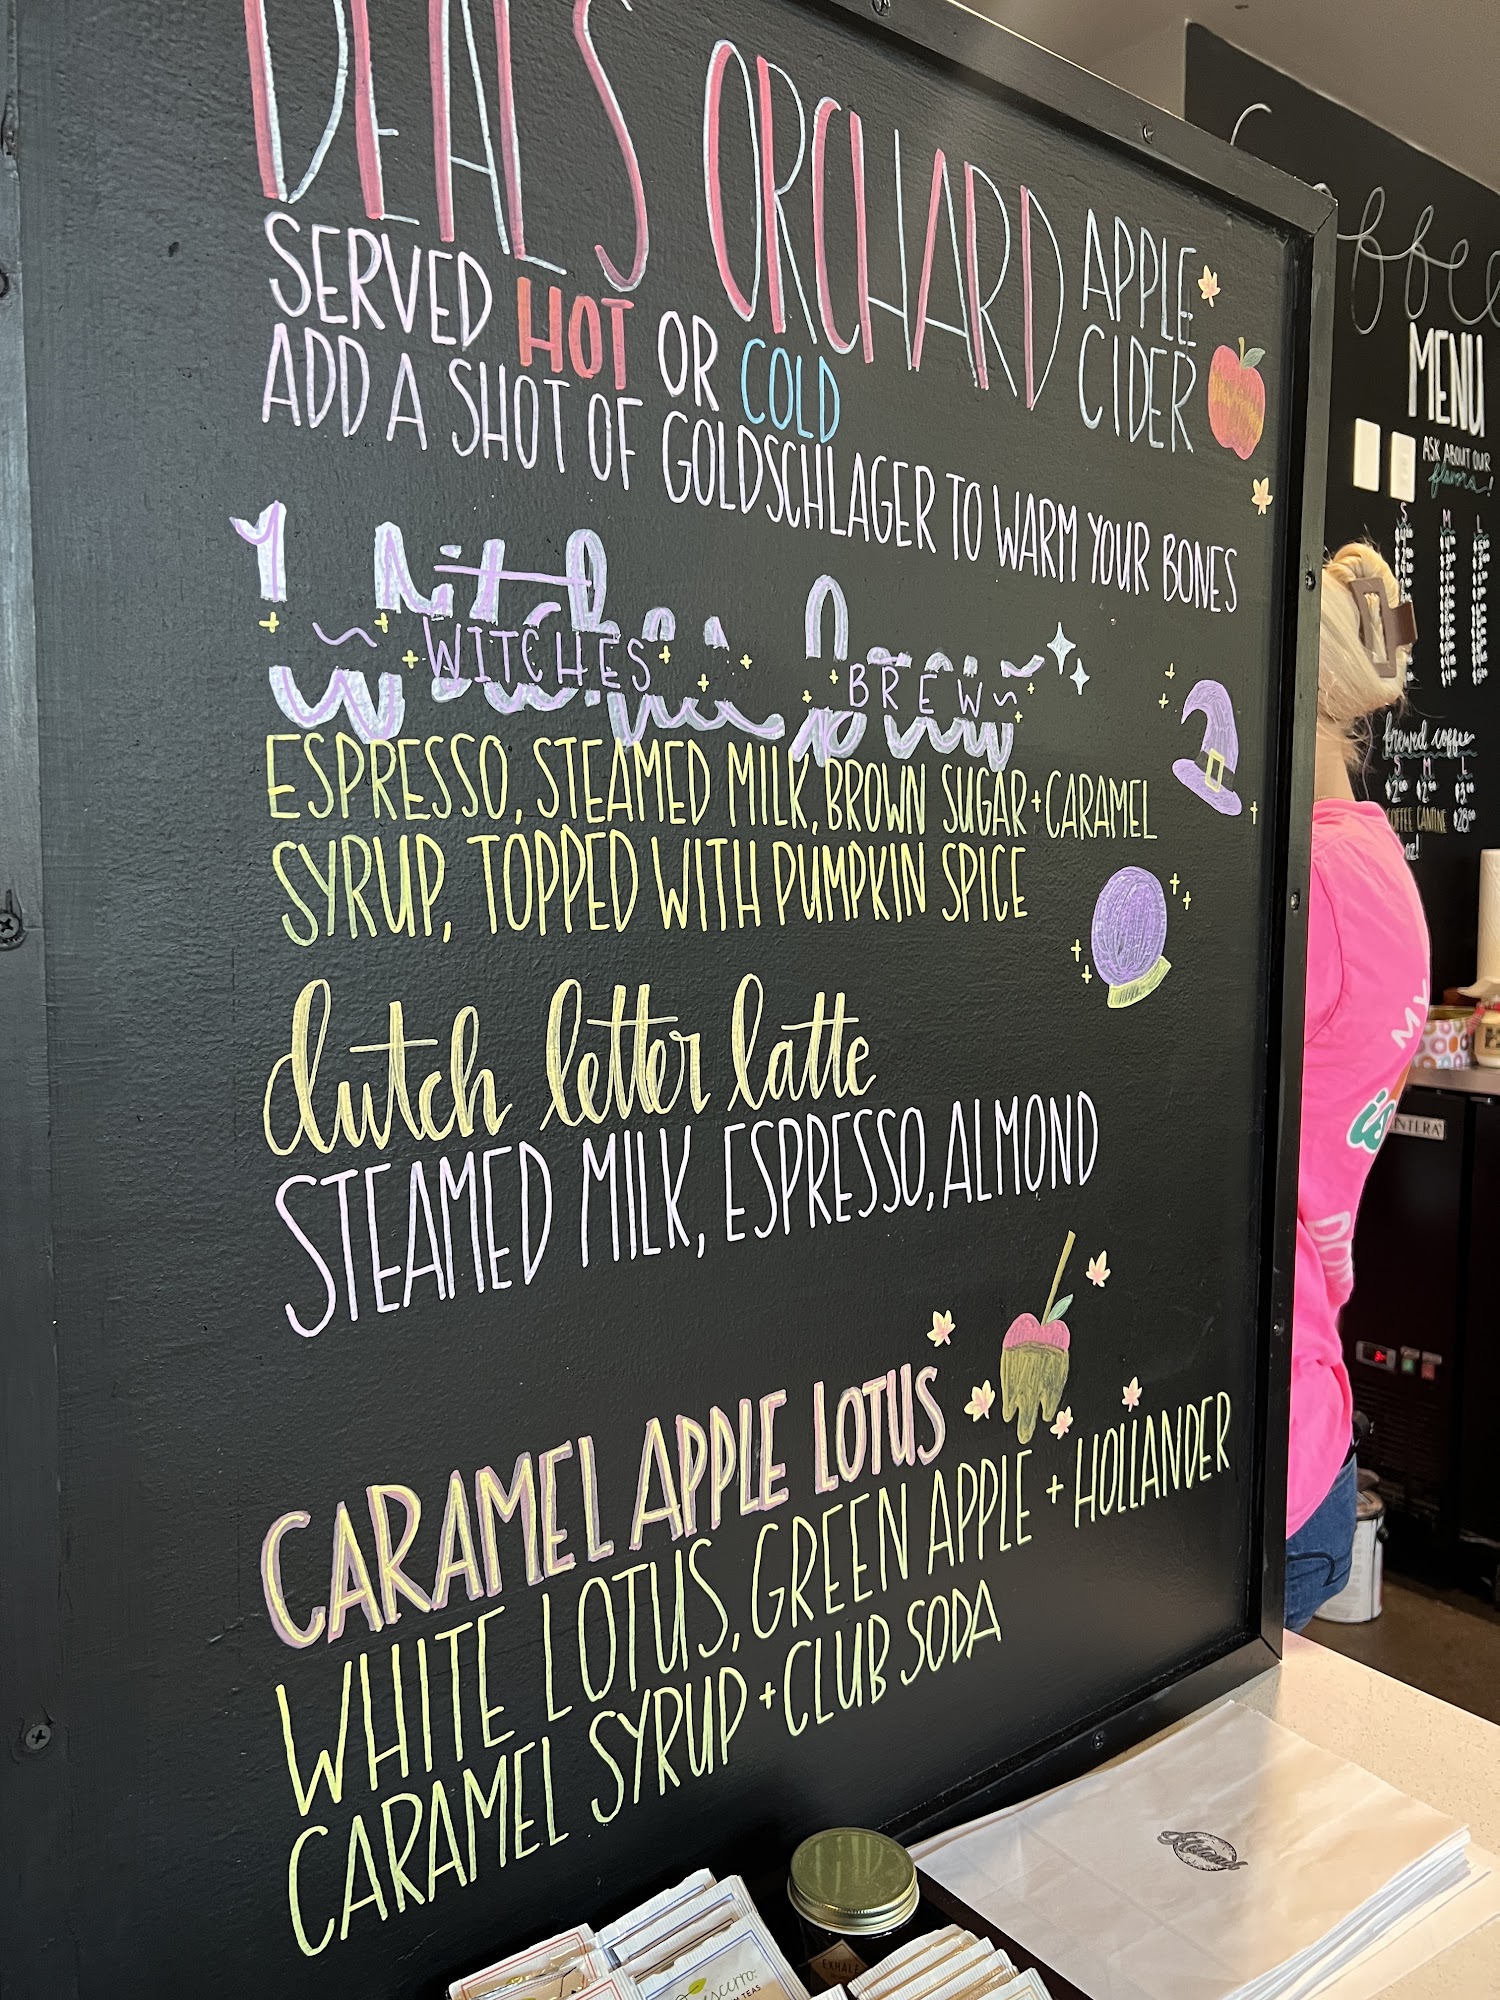 DEALS ORCHARD APPLE CIDER
SERVED HOT OR COLD
ADD A SHOT OF GOLDSCHLAGER TO WARM YOUR BONES
witches brew
WITCHES BREW
ESPRESSO, STEAMED MILK, BROWN SUGAR + CARAMEL
SYRUP, TOPPED WITH PUMPKIN SPICE
dutch letter latte
STEAMED MILK, ESPRESSO, ALMOND
CARAMEL APPLE LOTUS
WHITE LOTUS, GREEN APPLE + HOLLANDER
CARAMEL SYRUP + CLUB SODA
MENU
ASK ABOUT OUR
flavors!
S M L
brewed coffee
S M L
COFFEE CANTINE
MY
is
EXHALE